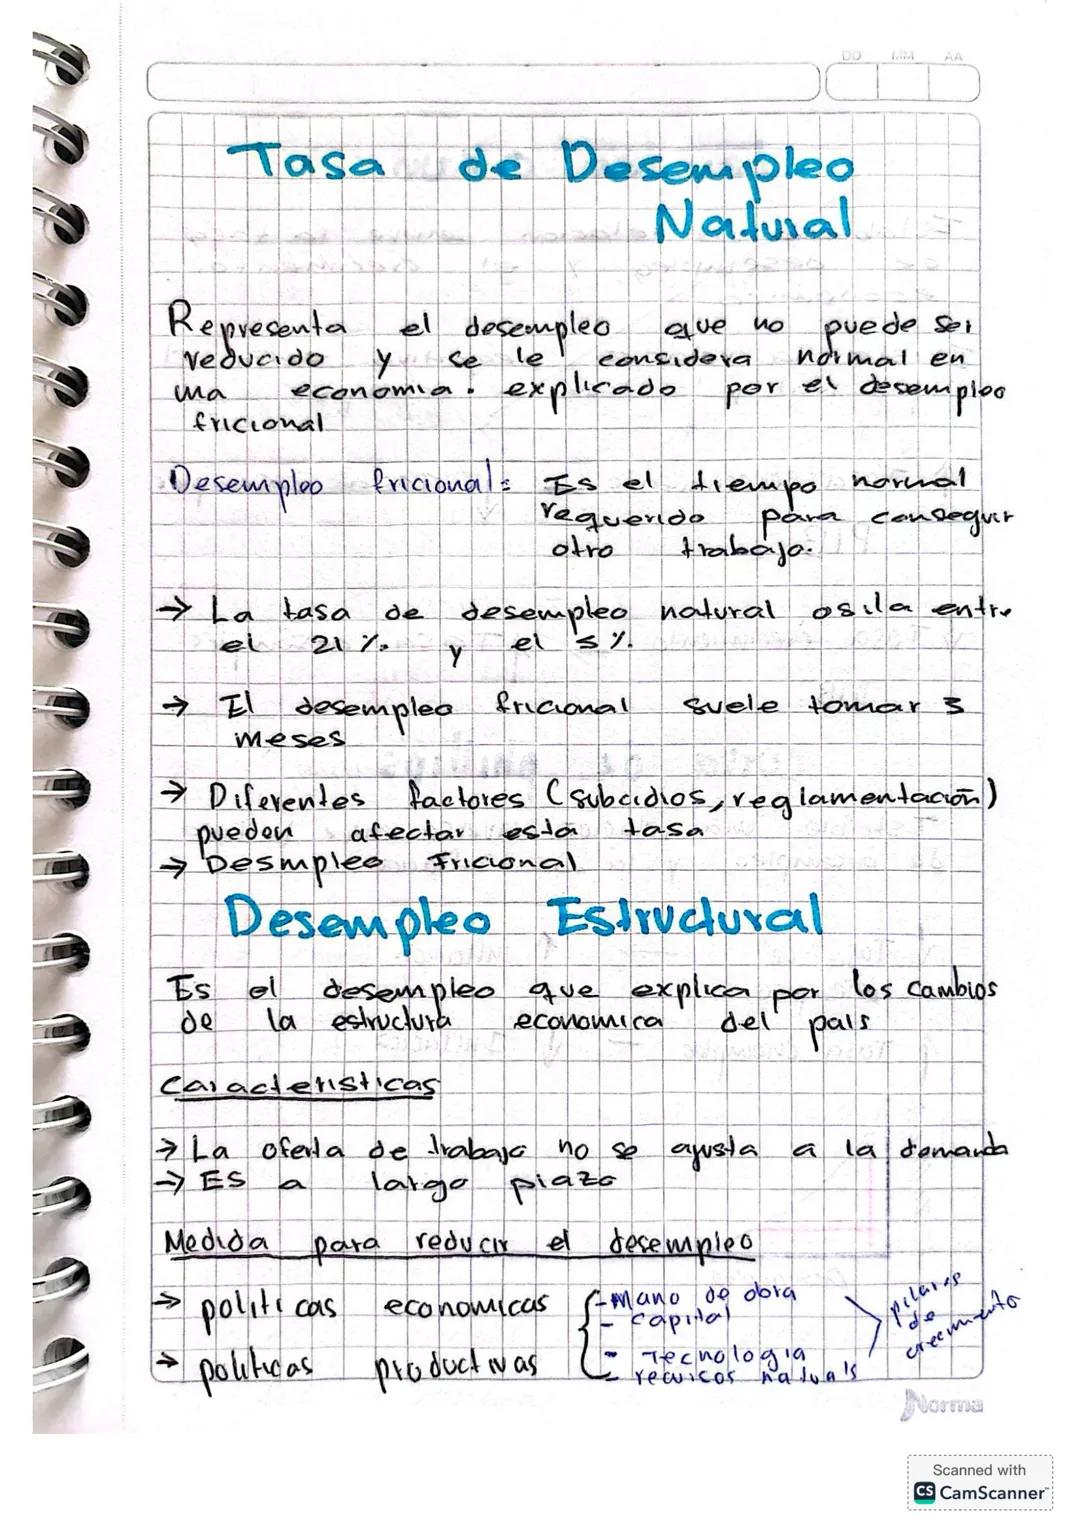 DD MM AA
Tasa de Desempleo
Natural
Representa el desempleo que no puede ser
reducido y se le considera normal en
una economia. explicado por el desempleo
friccional
Desempleo friccional: Es el tiempo normal
requerido para conseguir
otro trabajo.
→ La tasa de desempleo natural osila entre
el 21 %. y el 5 %.
→ El desempleo friccional suele tomar 3
meses
→ Diferentes factores (subcidios, reglamentación)
pueden afectar esta tasa
→ Desmpleo Friccional
Desempleo Estructural
Es el desempleo que explica por los cambios
de la estructura economica del país
Caracteristicas
→ La oferta de trabajo no se ajusta a la demanda
→ ES a largo plazo
Medida para reducir el desempleo
→ politicas economicas
- mano de obra
- capital
→ politicas productivas
- Tecnologia
- recursos naturals
pilares
de
crecimiento
Norma
Scanned with
CS CamScanner